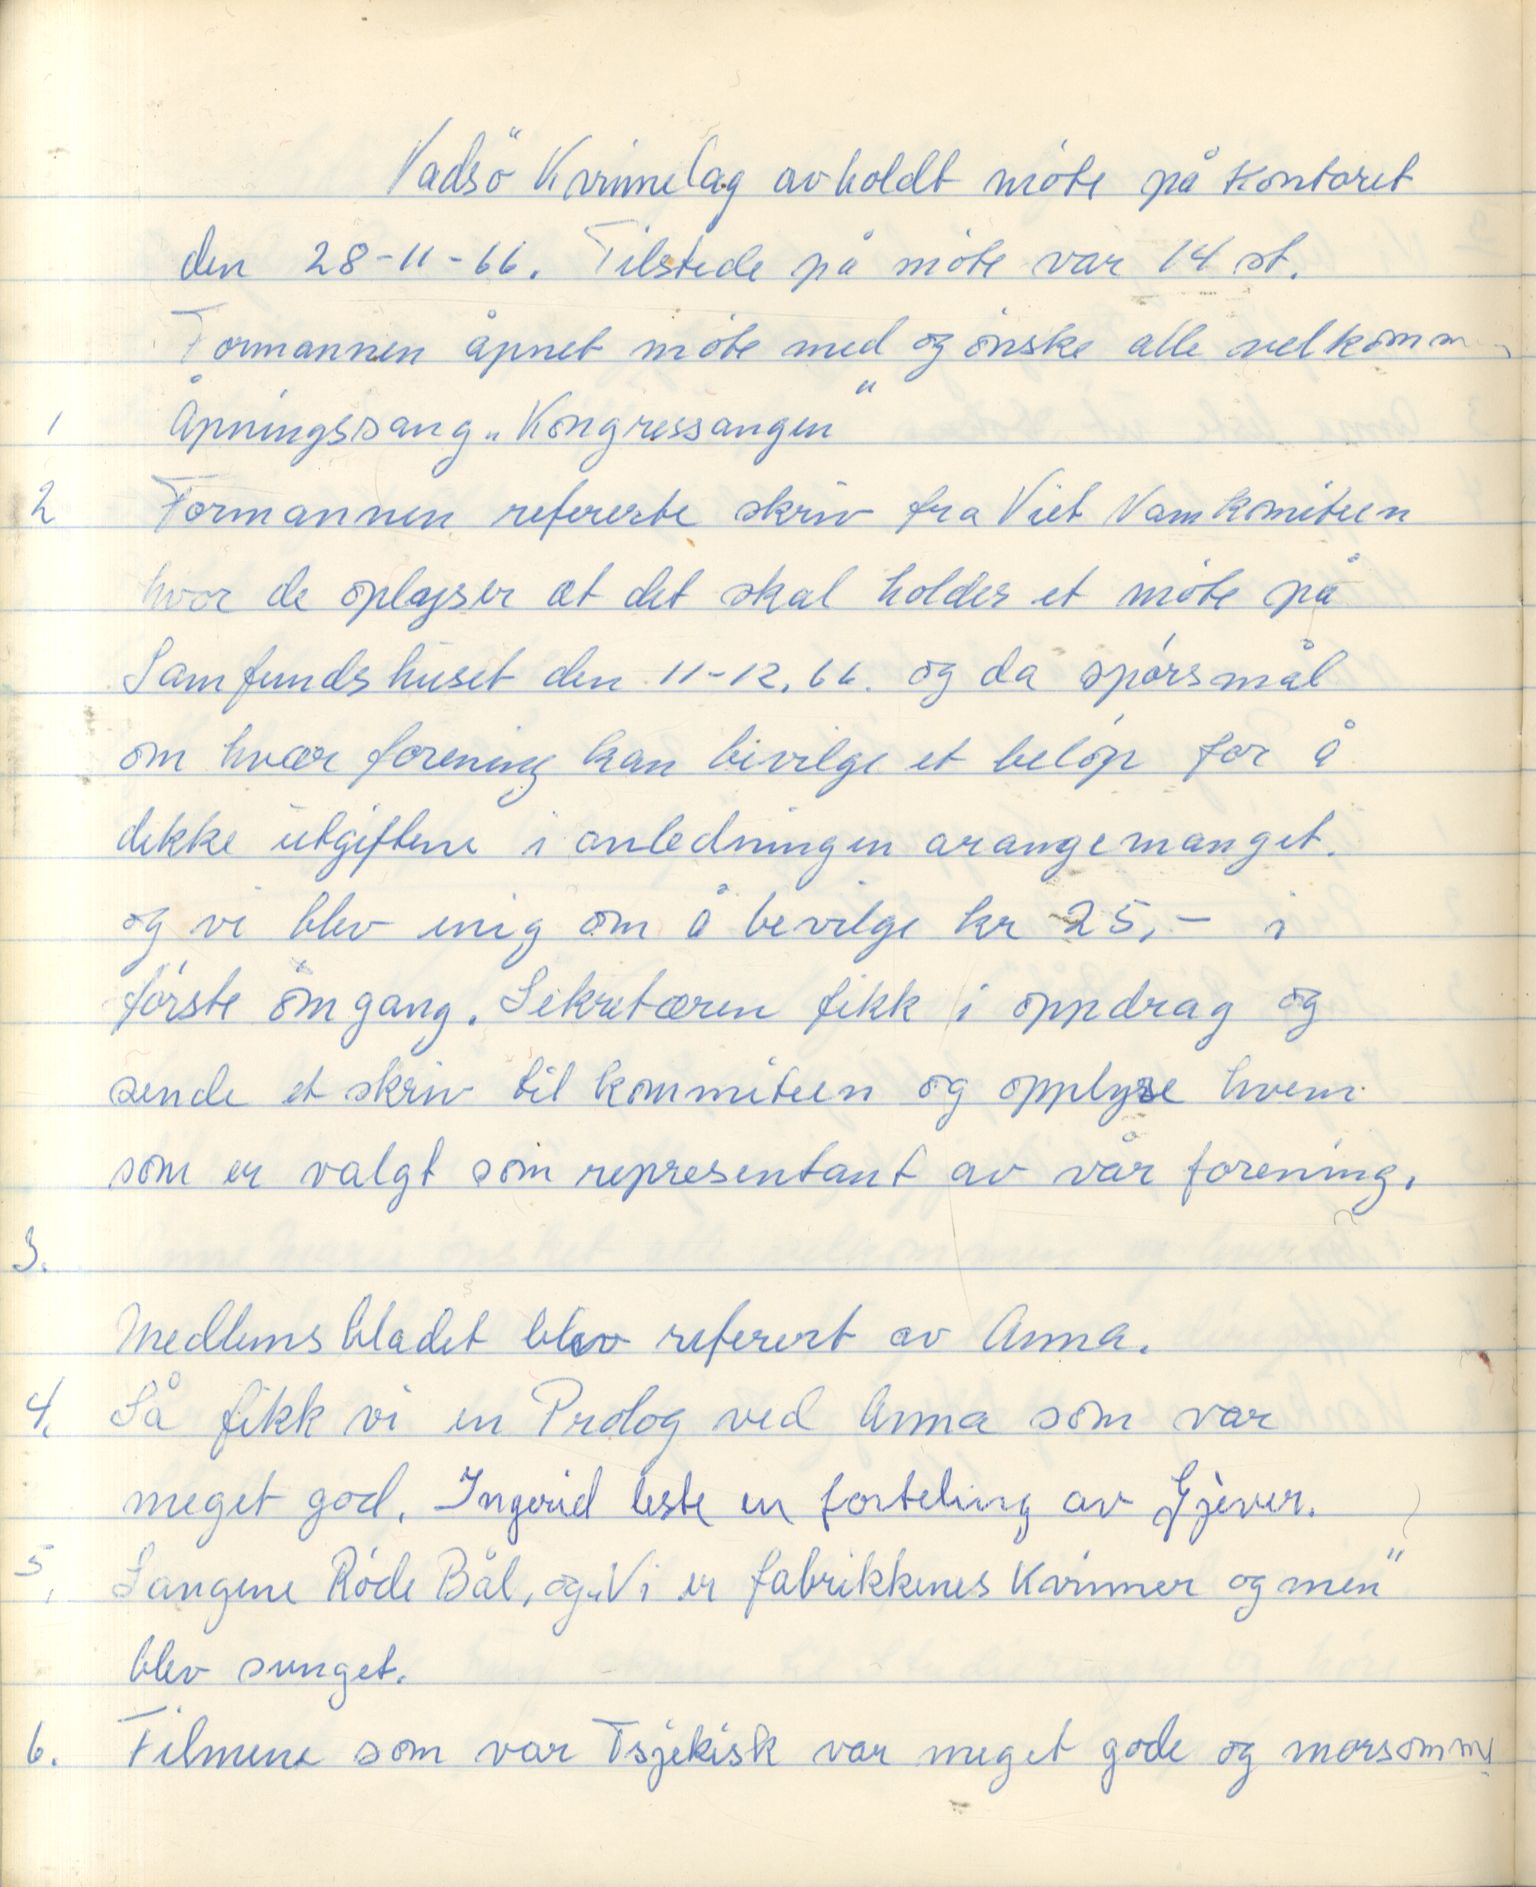 Vadsö Kvinnelag avholdt möte på Kontoret
den 28-11-66. Tilstede på möte var 14 st.
Formannen åpnet möte med og önske alle velkomm
1 Åpningssang „Kongressangen"
2 Formannen refererte skriv fra Viet Nam komiteen
hvor de oplyser at det skal holdes et möte på
Samfundshuset den 11-12.66. og da spörsmål
om hvær forening kan bivilge et belöp for å
dekke utgiftene i anledningen arangemanget.
og vi blev enig om å bevilge kr 25,- i
förste omgang. Sekretæren fikk i oppdrag og
sende et skriv til kommiteen og opplyse hvem
som er valgt som representant av vår forening.
3.
Medlemsbladet blev referert av Anna.
4. Så fikk vi en Prolog ved Anna som var
meget god. Ingerid leste en forteling av Gjæver.
5. Sangene Röde Bål, og „Vi er fabrikkenes Kvinner og men"
blev sunget.
6. Filmene som var Tsjekisk var meget gode og morsomme